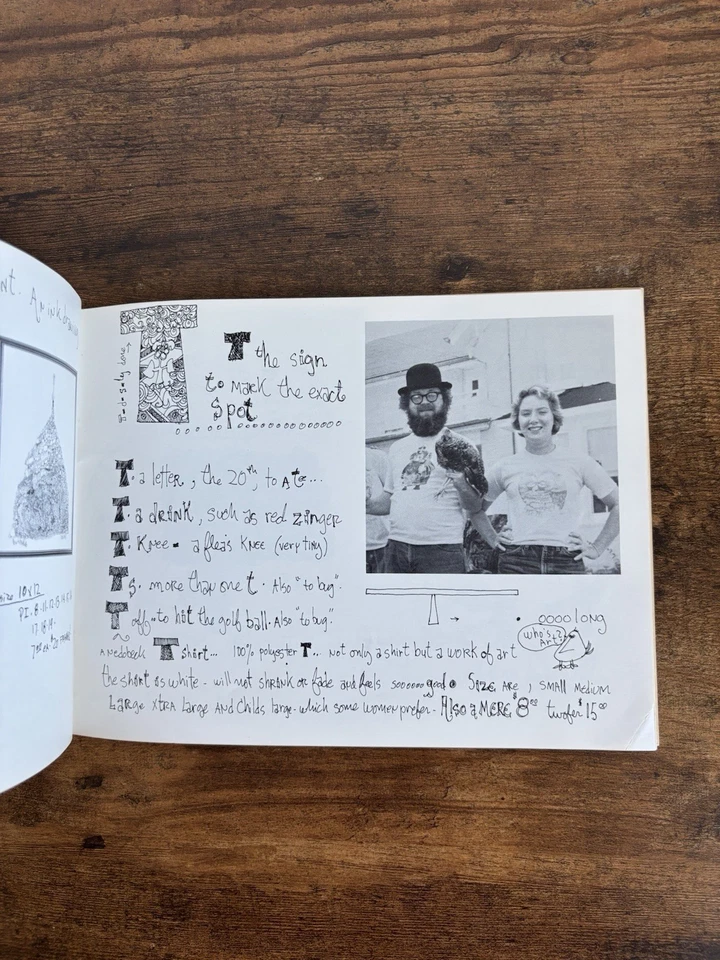 nt. An ink drawin
size 10x12
T
T the sign
to mark the exact
spot
T. a letter, the 20th, to A te....
T. a drink, such as red zinger
T. Knee - a flea's knee (very tiny)
Ts. more than one t. Also "to bug".
T off - to hit the golf ball. Also "to bug".
A nedobeck T shirt... 100% polyester T.. not only a shirt but a work of art
oooo long
who's? Art?
the shirt is white - will not shrink or fade and feels soooooo good. Size are, small medium
Large xtra large and childs large - which some women prefer. Also a mere $8.00 twofer $15.00